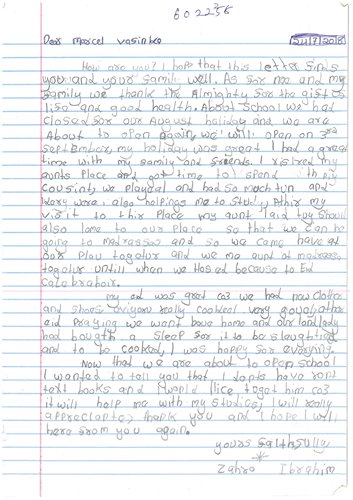 602238
Dear marcel vasinhka
24/7/2018
How are you? I hope that this letter Sinds
you and your Samili well. As Sor me and my
Samily we thank the Almighty Sor the giSt oS
liSe and good health. About School we had
closed Sor our August holiday and we are
About to open again, we will open on 3rd
September, my holiday was great I had a great
time with my Samily and Sriends. I visited my
aunts Place and got time to spend with my
Cousint, we played and had so much Sun and
were also helping me to Study, ASter my
visit to this Place my aunt Said they Should
also come to our Place so that we can be
going to madrassa and so we came have at
our Place togetur and we
togetur untill when we closed because to Eid
Celebration.
my eid was great coz we had new Clothes
and Shoes, everyone really cooked very good,
eid Praying we went bave home and our landlady
had bougth a Sleep for it to be slaughted
and to be cooked, I was happy Sor everying.
Now that we are about to open school
I wanted to tell you that I donts have
text books and I would like to get him coz
it will help me with my Studies, I will really
appreciante, thank you and I hope I will
here Srom you again.
yours SaithSully
Zahra Ibrahim